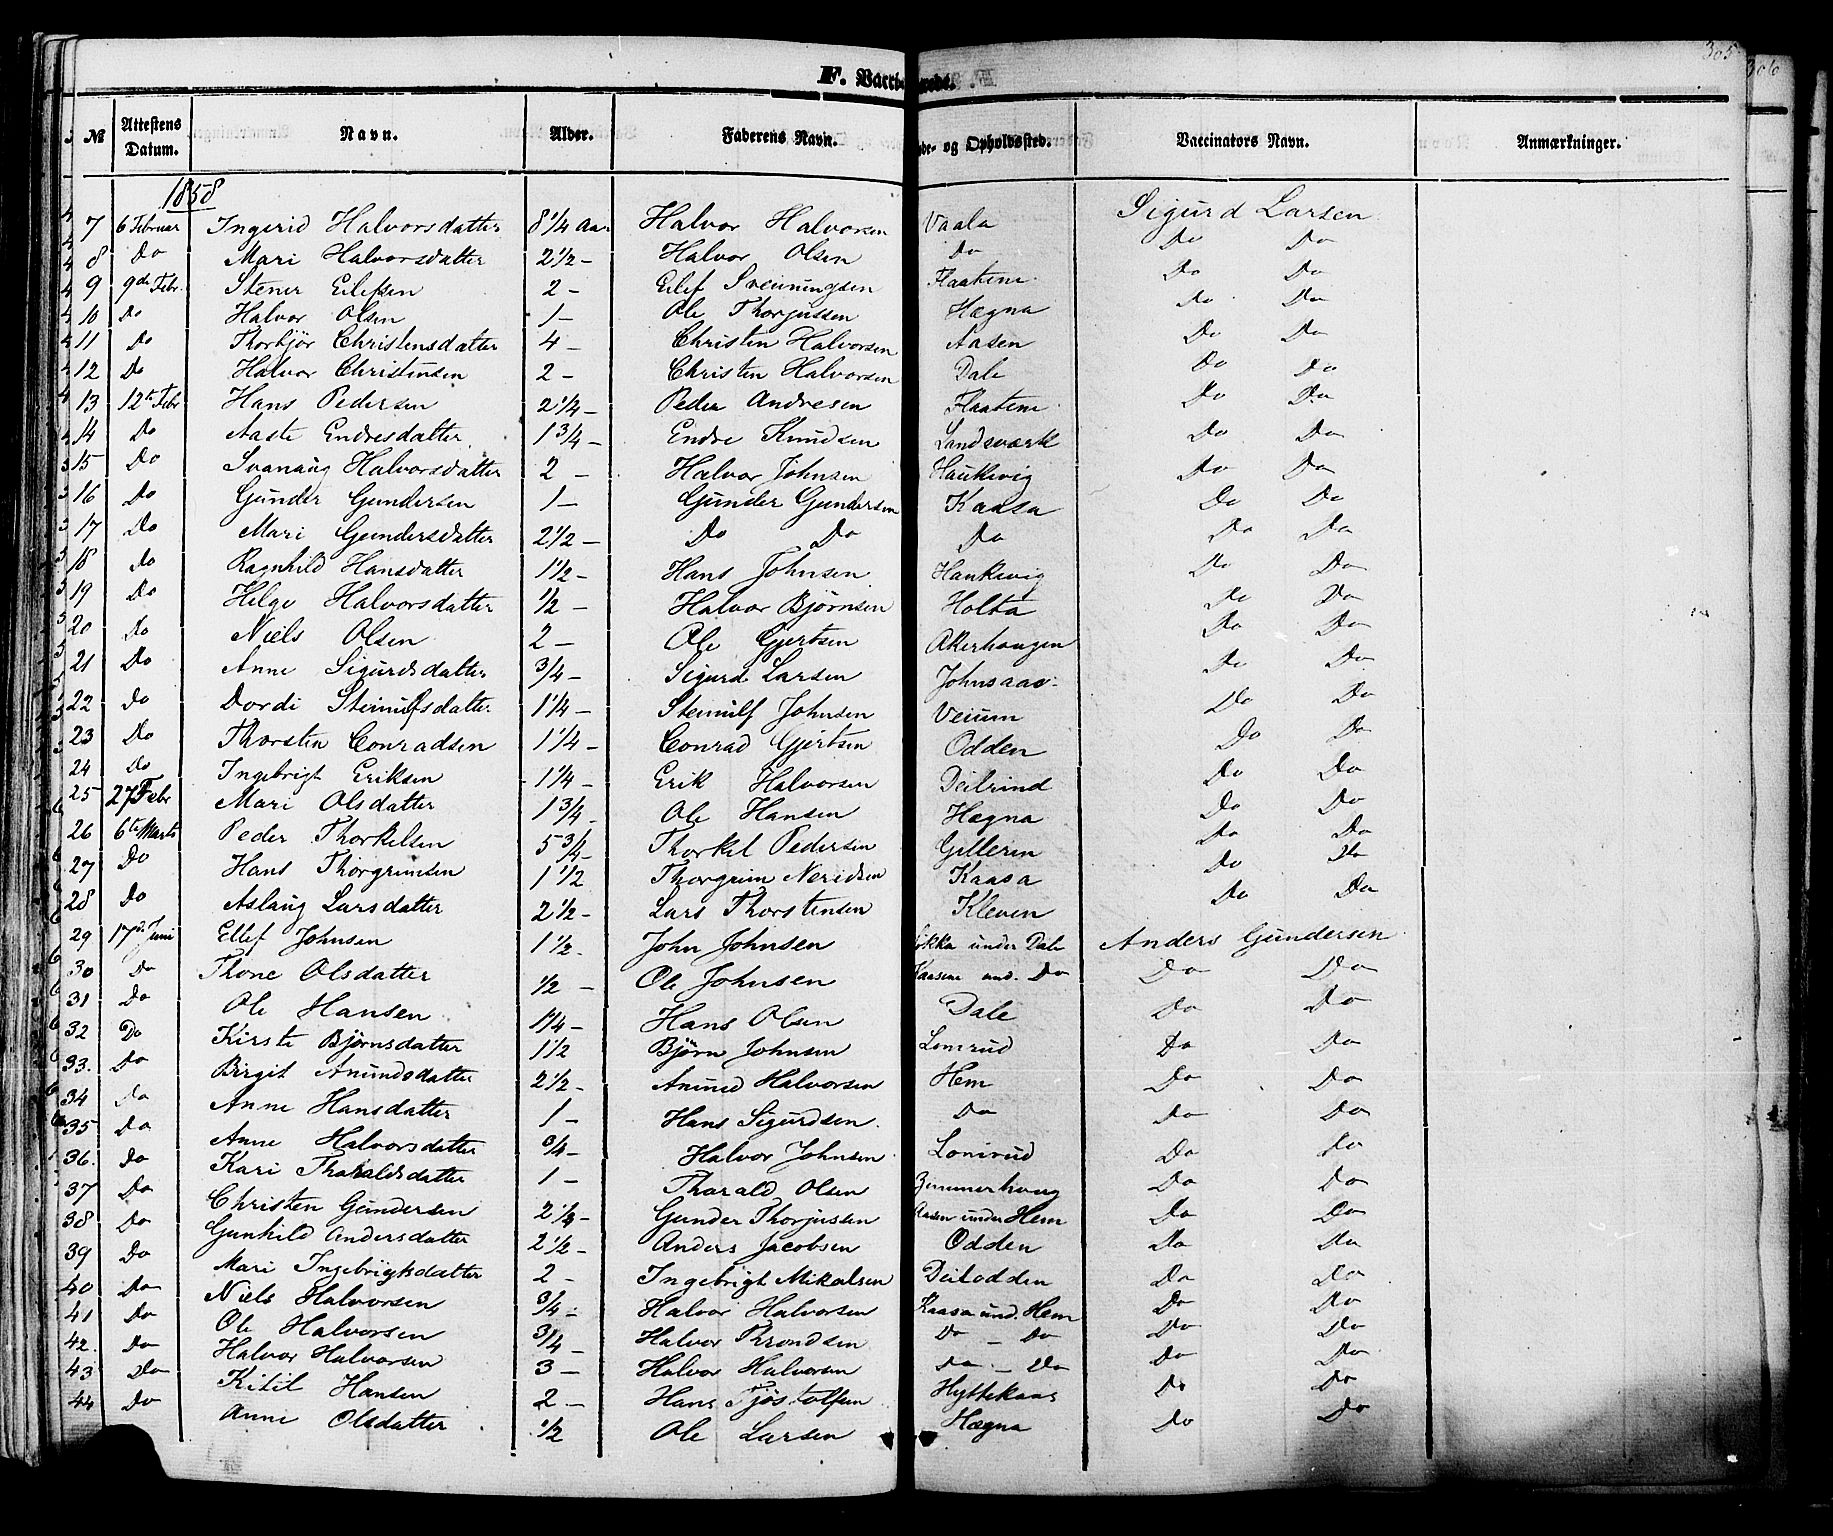 305
306
F. Vacci
№ Attestens Datum. Navn. Alder. Faderens Navn. og Opholdssted. Vaccinators Navn. Anmærkninger.
1858
7 6 Februar Ingerid Halvorsdatter 8 1/4 Aa. Halvor Halvorsen Vaala Sigurd Larsen
8 Do Mari Halvorsdatter 2 1/2 – Halvor Olsen Do Do Do
9 9de Febr. Stener Eilefsen 2 – Eilef Sveinungsen Flaatene Do Do
10 Do Halvor Olsen 1 – Ole Thorjussen Hægna Do Do
11 Do Thorbjør Christensdatter 4 – Christen Halvorsen Aasen Do Do
12 Do Halvor Christensen 2 – Christen Halvorsen Dale Do Do
13 12te Febr Hans Pedersen 2 1/4 – Peder Andresen Flaatene Do Do
14 Do Aaste Endresdatter 1 3/4 – Endre Knudsen Landsværk Do Do
15 Do Svanaug Halvorsdatter 2 – Halvor Johnsen Haukvig Do Do
16 Do Gunder Gundersen 1 – Gunder Gundersen Kaasa Do Do
17 Do Mari Gundersdatter 2 1/2 – Do Do Do Do Do
18 Do Ragnhild Hansdatter 1 1/2 – Hans Johnsen Haukvig Do Do
19 Do Helge Halvorsdatter 1/2 – Halvor Bjørnsen Holta Do Do
20 Do Niels Olsen 2 – Ole Gjertsen Akerhaugen Do Do
21 Do Anne Sigurdsdatter 3/4 – Sigurd Larsen Johnsaas Do Do
22 Do Dordi Steinulfsdatter 1 1/4 – Steinulf Johnsen Veium Do Do
23 Do Thorsten Conradsen 1 1/4 – Conrad Gjertsen Odden Do Do
24 Do Ingebrigt Eriksen 1 1/4 – Erik Halvorsen Deilrind Do Do
25 27 Febr Mari Olsdatter 1 3/4 – Ole Hansen Hægna Do Do
26 6te Marts Peder Thorkelsen 5 3/4 – Thorkel Pedersen Gilleren Do Do
27 Do Hans Thorgrimsen 1 1/2 Thorgrim Neridsen Kaasa Do Do
28 Do Aslaug Larsdatter 2 1/2 – Lars Thorstensen Kleven Do Do
29 17de Juni Ellef Johnsen 1 1/2 John Johnsen Løkka under Dale Anders Gundersen
30 Do Thone Olsdatter 1/2 – Ole Johnsen Kaasene und. Do Do Do
31 Do Ole Hansen 1 1/4 – Hans Olsen Dale Do Do
32 Do Kirste Bjørnsdatter 1 1/2 Bjørn Johnsen Lonerud Do Do
33 Do Birgit Anundsdatter 2 1/2 – Anund Halvorsen Hem Do Do
34 Do Anne Hansdatter 1 – Hans Sigurdsen Do Do Do
35 Do Anne Halvorsdatter 3/4 – Halvor Johnsen Lonerud Do Do
36. Do Kari Tharaldsdatter 1 – Tharald Olsen Do Do
37 Do Christen Gundersen 2 1/4 – Gunder Thorjussen Aasen under Hem Do Do
38 Do Gunhild Andersdatter 2 1/2 – Anders Jacobsen Odden Do Do
39 Do Mari Ingebrigtsdatter 2 – Ingebrigt Mikalsen Deilodden Do Do
40 Do Niels Halvorsen 3/4 – Halvor Halvorsen Kaasa und. Hem Do Do
41 Do Ole Halvorsen 3/4 – Halvor Throndsen Do – Do Do Do
42. Do Halvor Halvorsen 3 – Halvor Halvorsen Do – Do Do Do
43 Do Kitil Hansen 2 – Hans Tjøstolfsen Hyttekaas Do Do
44 Do Anne Olsdatter 1/2 Ole Larsen Hægna Do Do